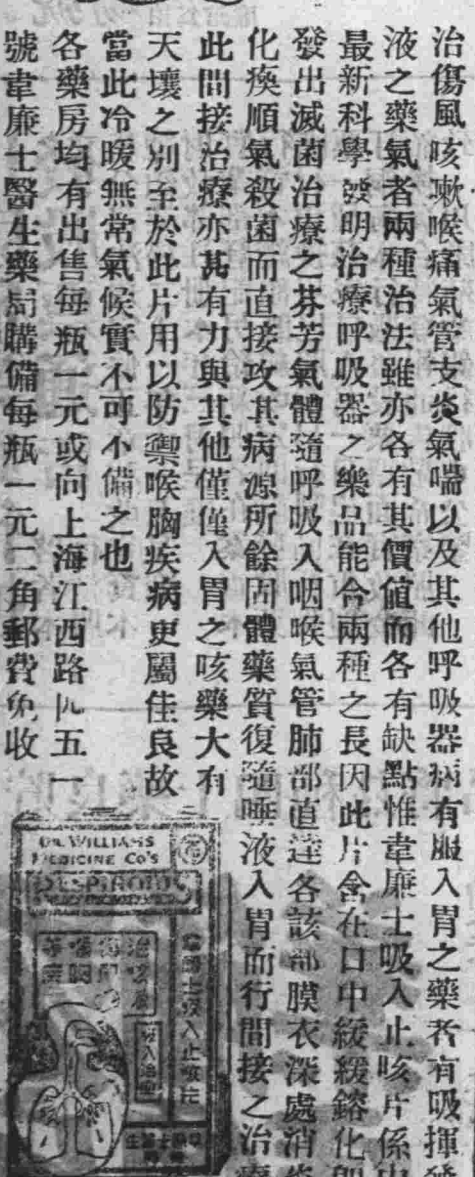 治傷風咳嗽喉痛氣管支炎氣喘以及其他呼吸器病有服入胃之藥者有吸揮發
液之藥氣者兩種治法雖亦各有其價值而各有缺點惟韋廉士吸入止咳片係由
最新科學發明治療呼吸器之藥品能合兩種之長因此片含在口中緩緩鎔化卽
發出滅菌治療之芬芳氣體隨呼吸入咽喉氣管肺部直達各該部膜衣深處消炎
化痰順氣殺菌而直接攻其病源所餘固體藥質復隨唾液入胃而行間接之治療
此間接治療亦甚有力與其他僅僅入胃之咳藥大有
天壤之別至於此片用以防禦喉胸疾病更屬佳良故
當此冷暖無常氣候實不可不備之也
各藥房均有出售每瓶一元或向上海江西路四五一
號韋廉士醫生藥局購備每瓶一元二角郵費免收
DR. WILLIAMS
MEDICINE CO'S
韋廉士吸入止咳片